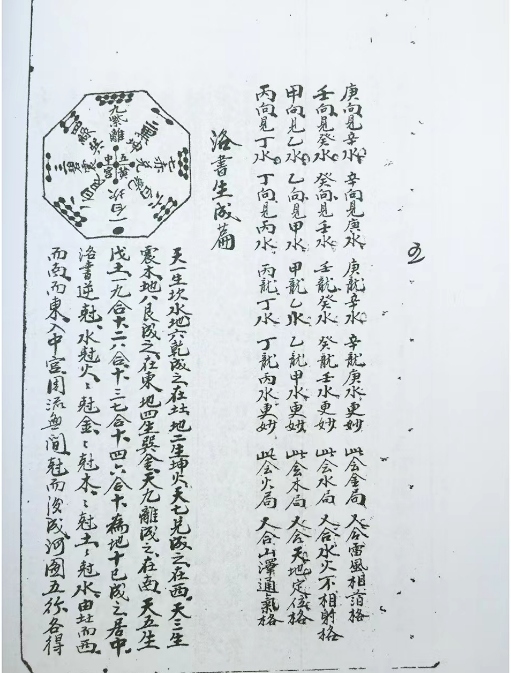 庚向見辛水。辛向見庚水。庚龍辛水、辛龍庚水更妙 此会金局 又合雷風相格
壬向見癸水。癸向見壬水、壬龍癸水、癸龍壬水更妙 此会水局 又合水火不相射格
甲向見乙水。乙向見甲水 甲龍乙水、乙龍甲水更妙 此会木局 又合天地定位格
丙向見丁水。丁向見丙水、丙龍丁水、丁龍丙水更妙 此会火局 又合山澤通氣格
洛書生成篇
九紫離
七赤兌
一白坎
天一生坎水地六乾成之在北、地二生坤火、天七兌成之在西、天三生
震木地八艮成之、在東、地四生巽金、天九離成之、在南、天五生
戊土一九合十二八合十、三七合十、四六合十、為地十己成之居中、
洛書逆尅、水尅火、〻尅金、〻尅木、〻尅土、〻尅水由北而西
而南而東入中宮周流無間、尅而後成河圖五行各得